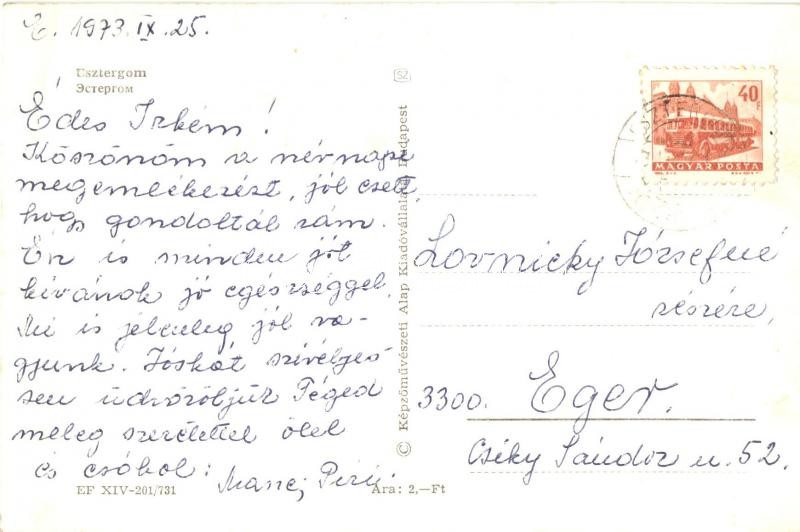 E. 1973. IX. 25.
Esztergom
Эстергом
Édes Irkém!
Köszönöm a névnapi
megemlékezést, jól esett,
hogy gondoltál rám.
Én is minden jót
kívánok jó egészséggel.
Mi is jelenleg jól va-
gyunk. Jóskát szívélyes-
sen üdvözöljük Téged
meleg szeretettel ölel
és csókol:
EF XIV-201/731
Ára: 2,—Ft
© Képzőművészeti Alap Kiadóvállalata, Budapest
SZ
40 F
MAGYAR POSTA
Lovniczky Józsefné
részére,
3300. Eger.
Csíky Sándor u. 52.